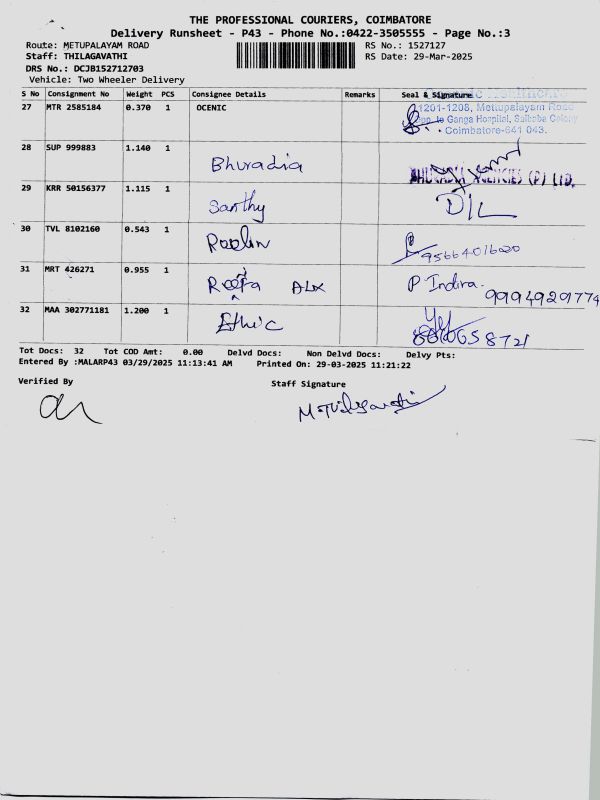 THE PROFESSIONAL COURIERS, COIMBATORE
Delivery Runsheet - P43 - Phone No.:0422-3505555 - Page No.:3
Route: METUPALAYAM ROAD RS No.: 1527127
Staff: THILAGAVATHI RS Date: 29-Mar-2025
DRS No.: DCJB152712703
Vehicle: Two Wheeler Delivery
S No Consignment No Weight PCS Consignee Details Remarks Seal & Signature
27 MTR 2585184 0.370 1 OCENIC
1201-1208, Mettupalayam Road
Opp. to Ganga Hospital, Saibaba Colony
Coimbatore-641 043.
28 SUP 999883 1.140 1 Bhuradia BHURADIA AGENCIES (P) LTD.
29 KRR 50156377 1.115 1 Santhy
30 TVL 8102160 0.543 1
31 MRT 426271 0.955 1 Alx P Indira. 9994929774
32 MAA 302771181 1.200 1 Ethic
Tot Docs: 32 Tot COD Amt: 0.00 Delvd Docs: Non Delvd Docs: Delvy Pts:
Entered By :MALARP43 03/29/2025 11:13:41 AM Printed On: 29-03-2025 11:21:22
Verified By Staff Signature